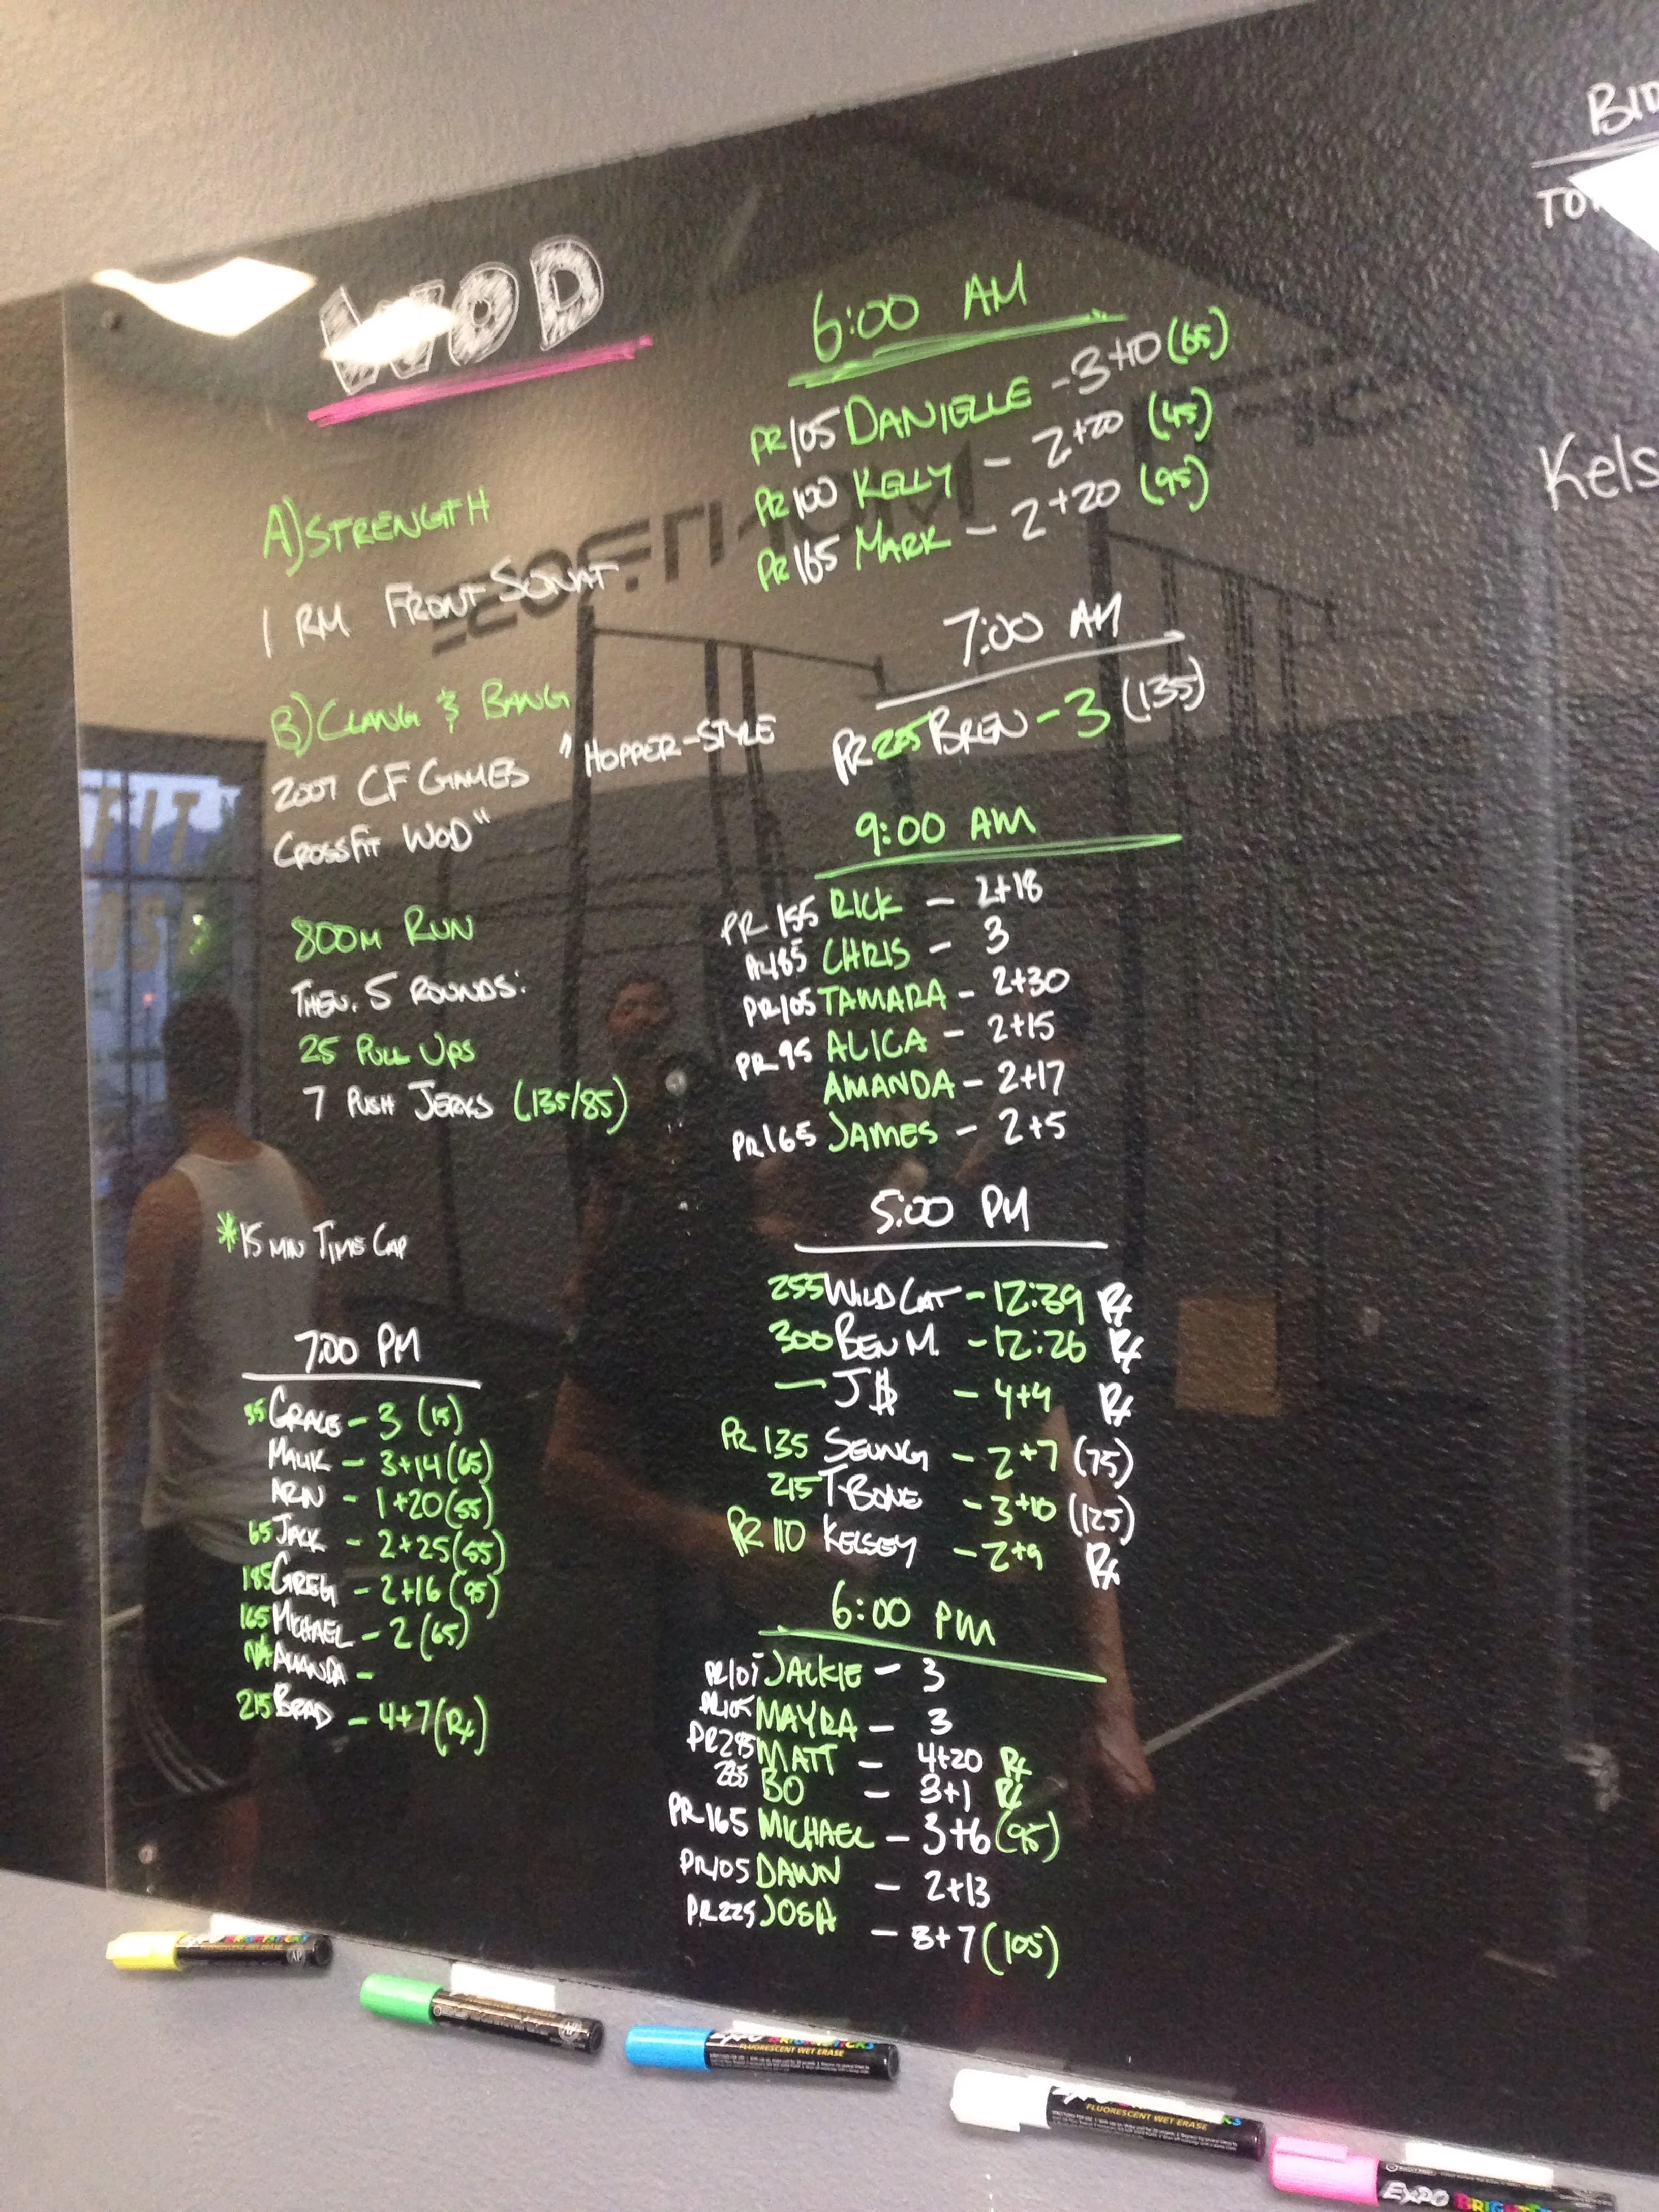 WOD
A) STRENGTH
1 RM FRONT SQUAT
B) CLANG & BANG
2007 CF GAMES "HOPPER-STYLE
CROSSFIT WOD"
800M RUN
THEN. 5 ROUNDS:
25 PULL UPS
7 PUSH JERKS (135/85)
*15 MIN TIME CAP
7:00 PM
35 GRACE - 3 (15)
MALIK - 3+14 (65)
ARN - 1+20 (55)
65 JACK - 2+25 (55)
185 GREG - 2+16 (95)
165 MICHAEL - 2 (65)
N/A AMANDA -
215 BRAD - 4+7 (Rx)
6:00 AM
PR 105 DANIELLE - 3+10 (65)
PR 100 KELLY - 2+20 (45)
PR 165 MARK - 2+20 (95)
7:00 AM
PR 225 BREN - 3 (135)
9:00 AM
PR 155 RICK - 2+18
CHRIS - 3
PR 105 TAMARA - 2+30
PR 95 ALICA - 2+15
AMANDA - 2+17
PR 165 JAMES - 2+5
5:00 PM
255 WILD CAT - 12:39 Rx
300 BEN M. - 12:26 Rx
— J$ - 4+4 Rx
PR 135 SEUNG - 2+7 (75)
215 T-BONE - 3+10 (125)
PR 110 KELSEY - 2+9 Rx
6:00 PM
JACKIE - 3
PR 105 MAYRA - 3
MATT - 4+20 Rx
BO - 3+1 Rx
PR 165 MICHAEL - 3+6 (95)
PR 105 DAWN - 2+13
PR 225 JOSH - 3+7 (105)
Kels
EXPO BRIGHTSTICKS
FLUORESCENT WET ERASE
FLUORESCENT WET ERASE
EXPO